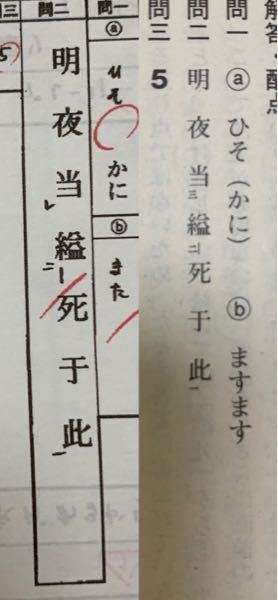 解答・配点
問一 ⓐ ひそ(かに) ⓑ ますます
問二 明夜当三縊二死于此一
問三 5
問一
ⓐ
ひそかに
ⓑ
また
問二
明夜当レ縊二死于此一
5